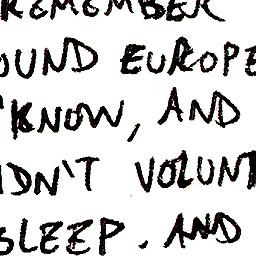 REMEMBER
OUND EUROPE
KNOW, AND
IDN'T VOLUNT
SLEEP. AND